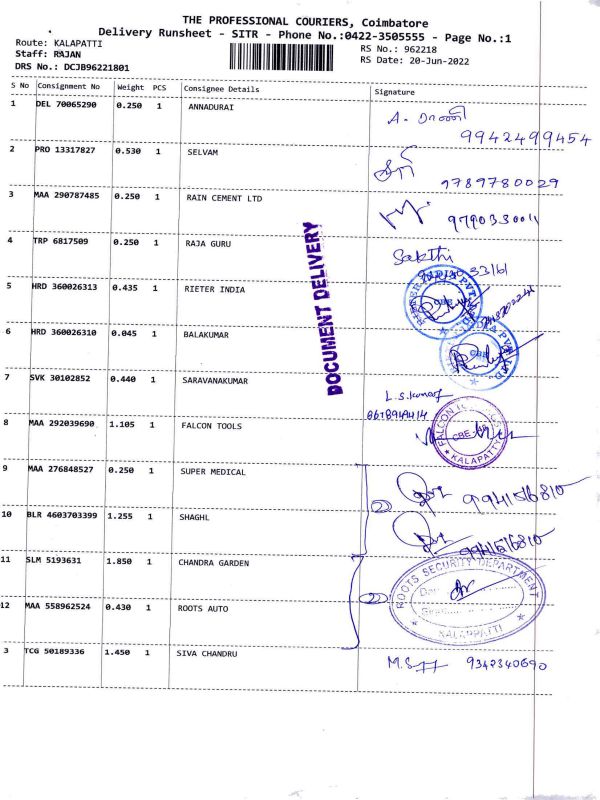 THE PROFESSIONAL COURIERS, Coimbatore
Delivery Runsheet - SITR - Phone No.:0422-3505555 - Page No.:1
Route: KALAPATTI
RS No.: 962218
Staff: RAJAN
RS Date: 20-Jun-2022
DRS No.: DCJB96221801
S No Consignment No Weight PCS Consignee Details Signature
1 DEL 70065290 0.250 1 ANNADURAI A. ராணி
9942499454
2 PRO 13317827 0.530 1 SELVAM
9789780029
3 MAA 290787485 0.250 1 RAIN CEMENT LTD 9790330011
4 TRP 6817509 0.250 1 RAJA GURU Sakthi
DOCUMENT DELIVERY
5 HRD 360026313 0.435 1 RIETER INDIA
CBE
6 HRD 360026310 0.045 1 BALAKUMAR
CBE
7 SVK 30102852 0.440 1 SARAVANAKUMAR L.S.Kumar
8 MAA 292039690 1.105 1 FALCON TOOLS
FALCON
CBE-48
KALAPATTY
9 MAA 276848527 0.250 1 SUPER MEDICAL 9941516810
10 BLR 4603703399 1.255 1 SHAGHL 9941516810
11 SLM 5193631 1.850 1 CHANDRA GARDEN
ROOTS SECURITY DEPARTMENT
KALAPPATTI
12 MAA 558962524 0.430 1 ROOTS AUTO
3 TCG 50189336 1.450 1 SIVA CHANDRU 9342340690